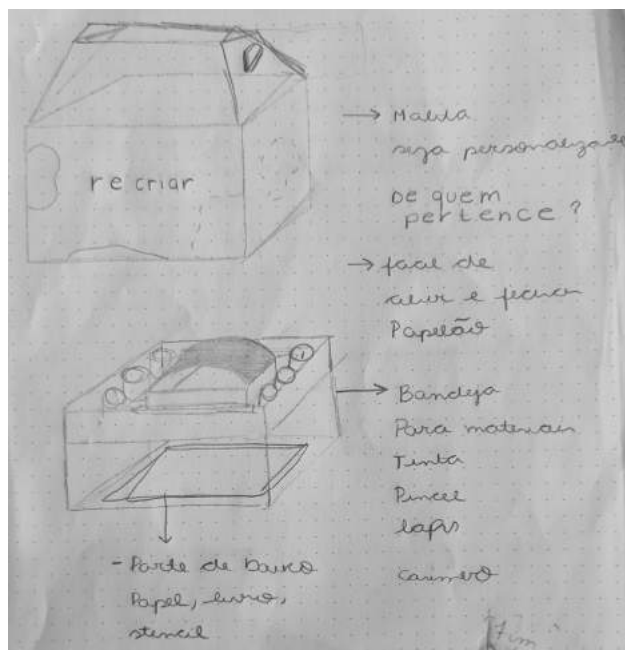 recriar
→ Maleta
seja personalizada
De quem
pertence?
→ facil de
abrir e fechar
Papelão
→ Bandeja
Para materiais
Tinta
Pincel
lapis
- Parte de baixo
Papel, livro,
stencil